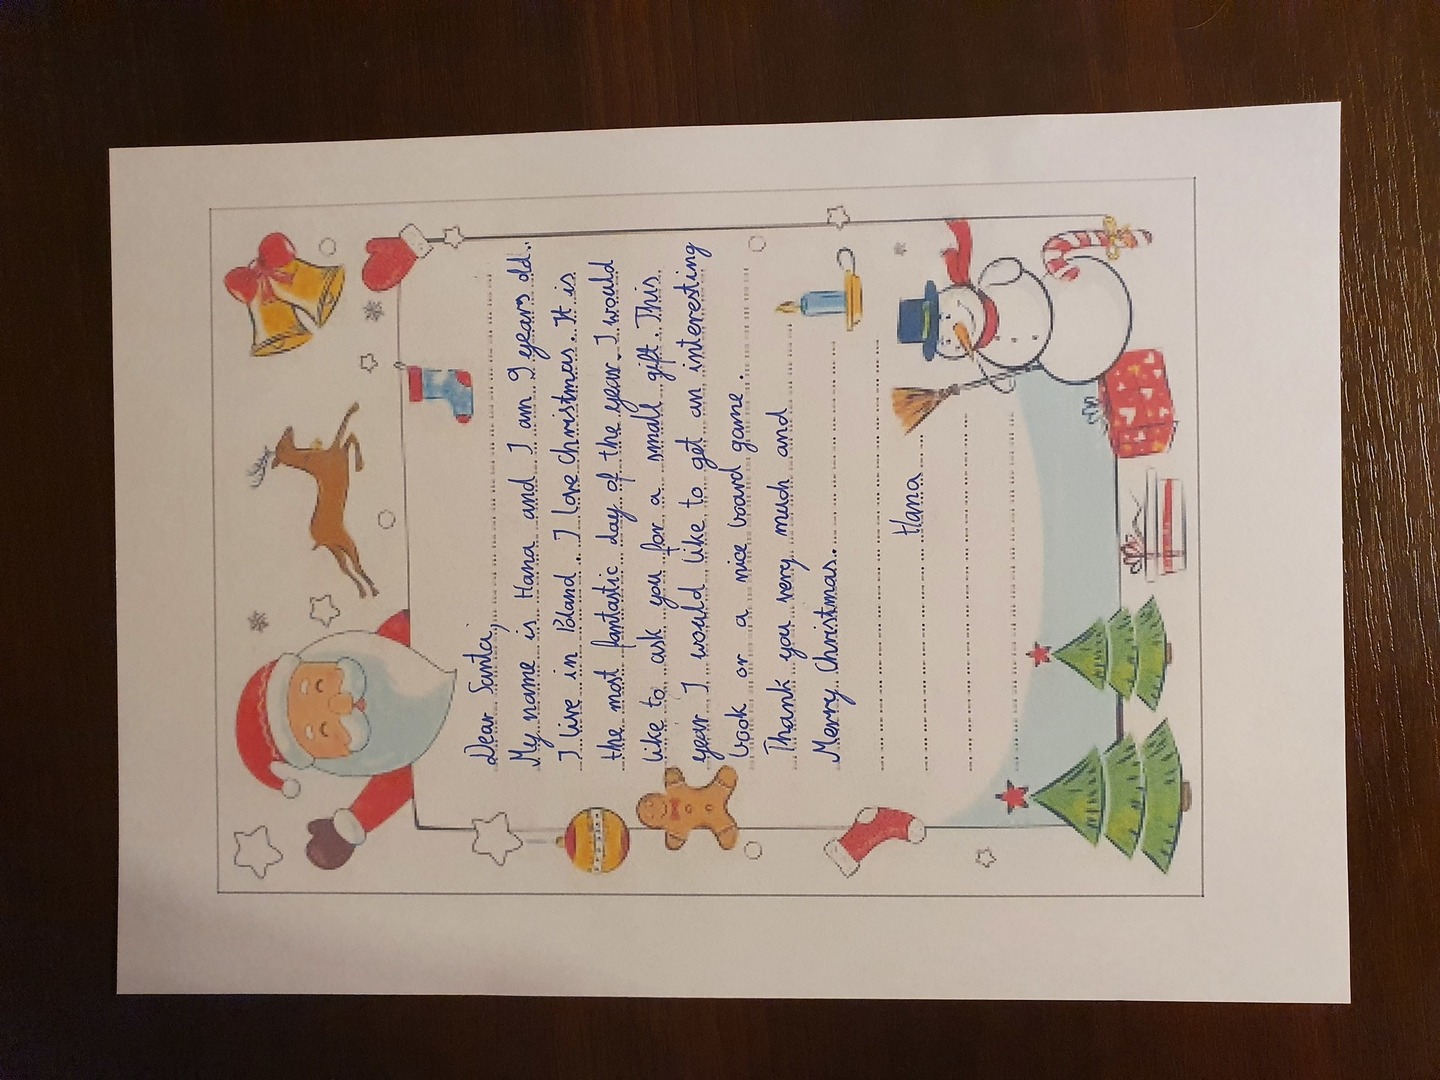 Dear Santa,
My name is Hana and I am 9 years old.
I live in Poland. I love Christmas. It is
the most fantastic day of the year. I would
like to ask you for a small gift. This
year I would like to get an interesting
book or a nice board game.
Thank you very much and
Merry Christmas.
Hana